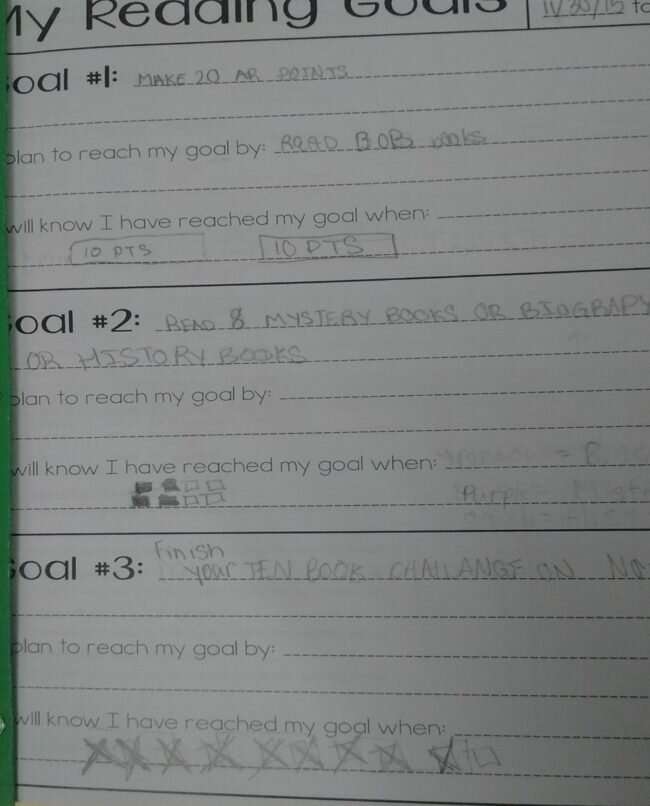 My Reading Goals
11/30/15 to
oal #1: MAKE 20 AR POINTS
plan to reach my goal by: READ BOB books
will know I have reached my goal when:
10 PTS 10 PTS
oal #2: READ 8 MYSTERY BOOKS OR BIOGRAPY
OR HISTORY BOOKS
plan to reach my goal by:
will know I have reached my goal when:
Purple =
Finish
oal #3: your TEN BOOK CHALLANGE ON NO
plan to reach my goal by:
will know I have reached my goal when: